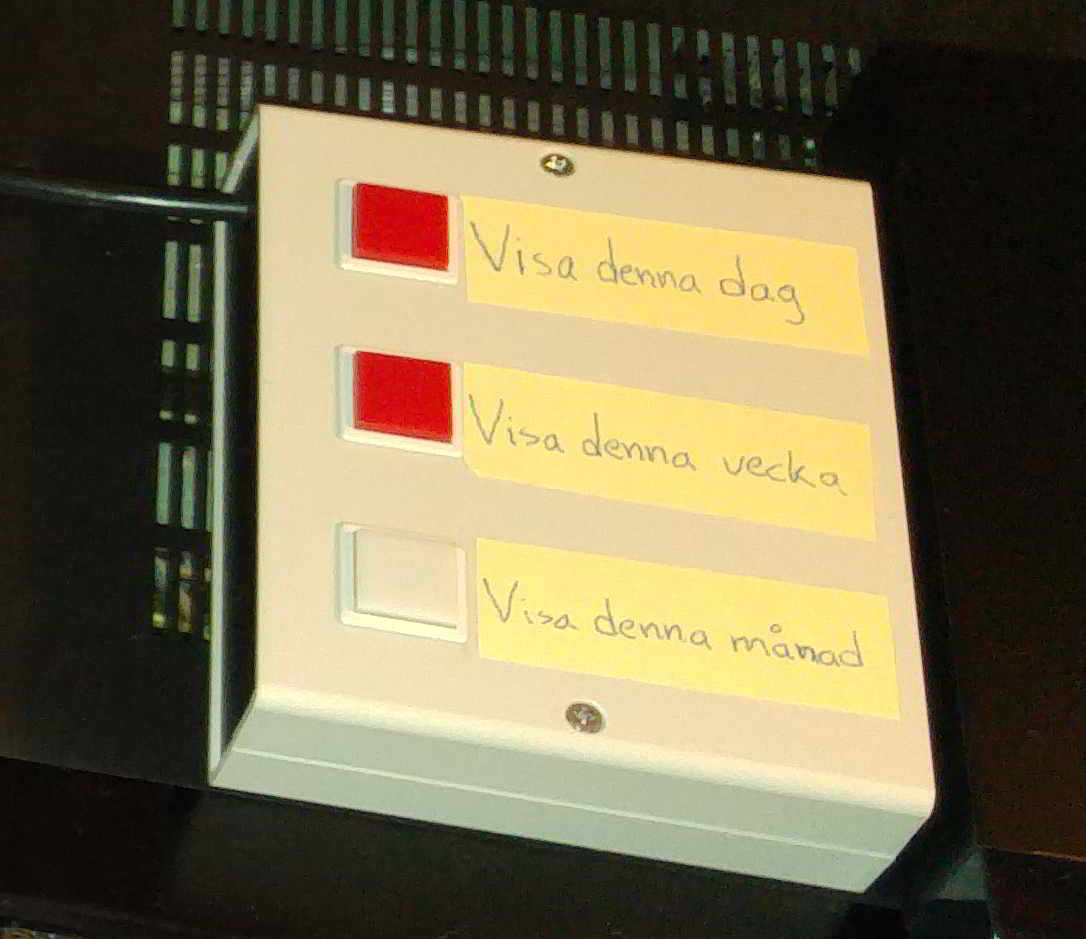 Visa denna dag
Visa denna vecka
Visa denna månad